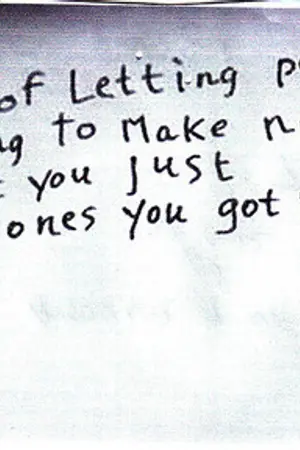 of Letting
to Make
you just
ones you got